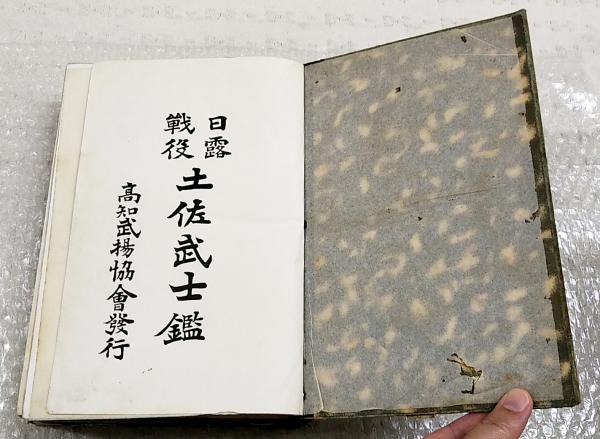 日露
戰役
土佐武士鑑
高知武揚協會發行